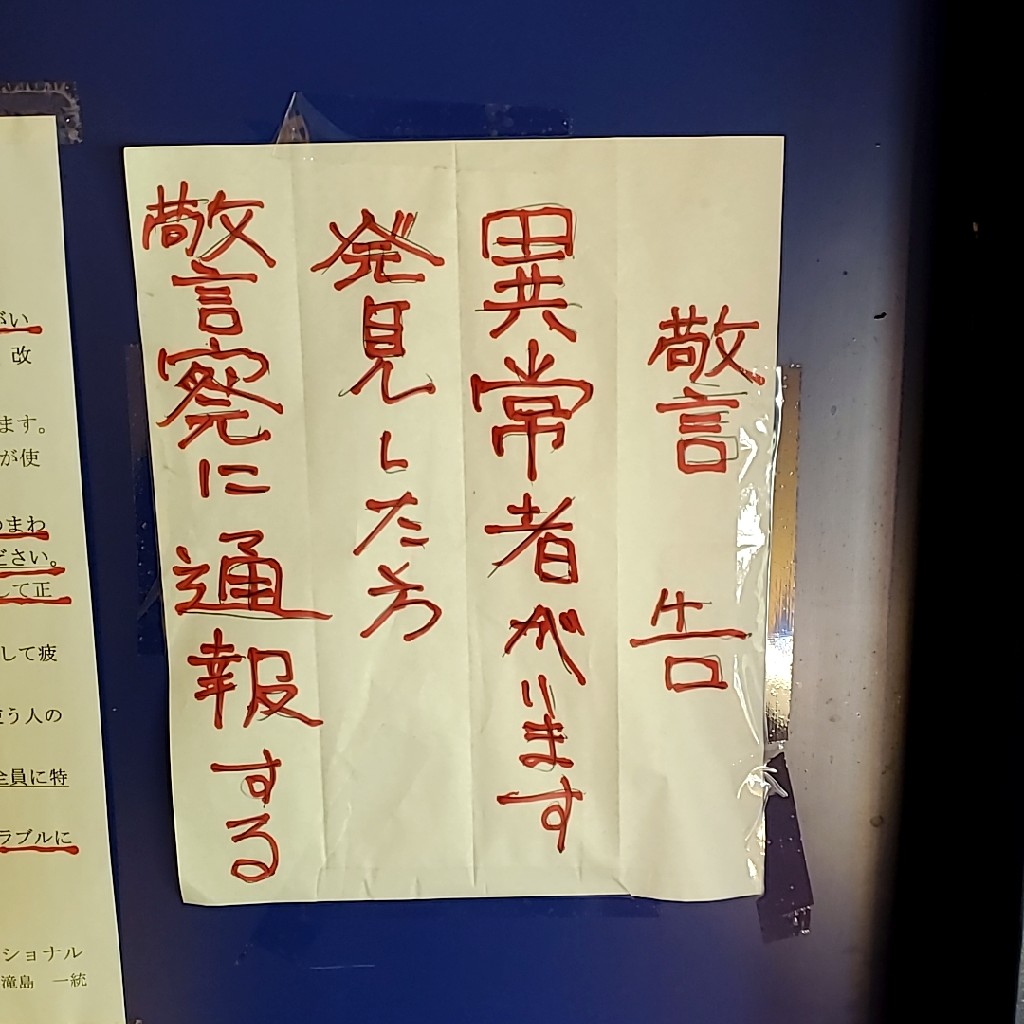 警告
異常者がいます
発見した方
警察に通報する
がい
改
ます。
が使
のまわ
ださい。
して正
して疲
使う人の
全員に特
ラブルに
ショナル
滝島 一統